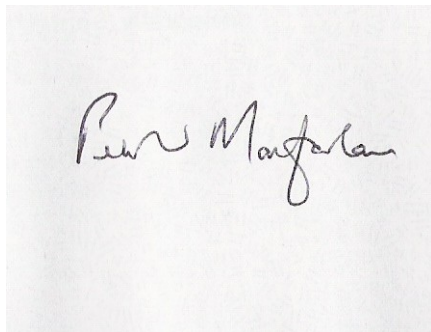 Peter Macfarlane